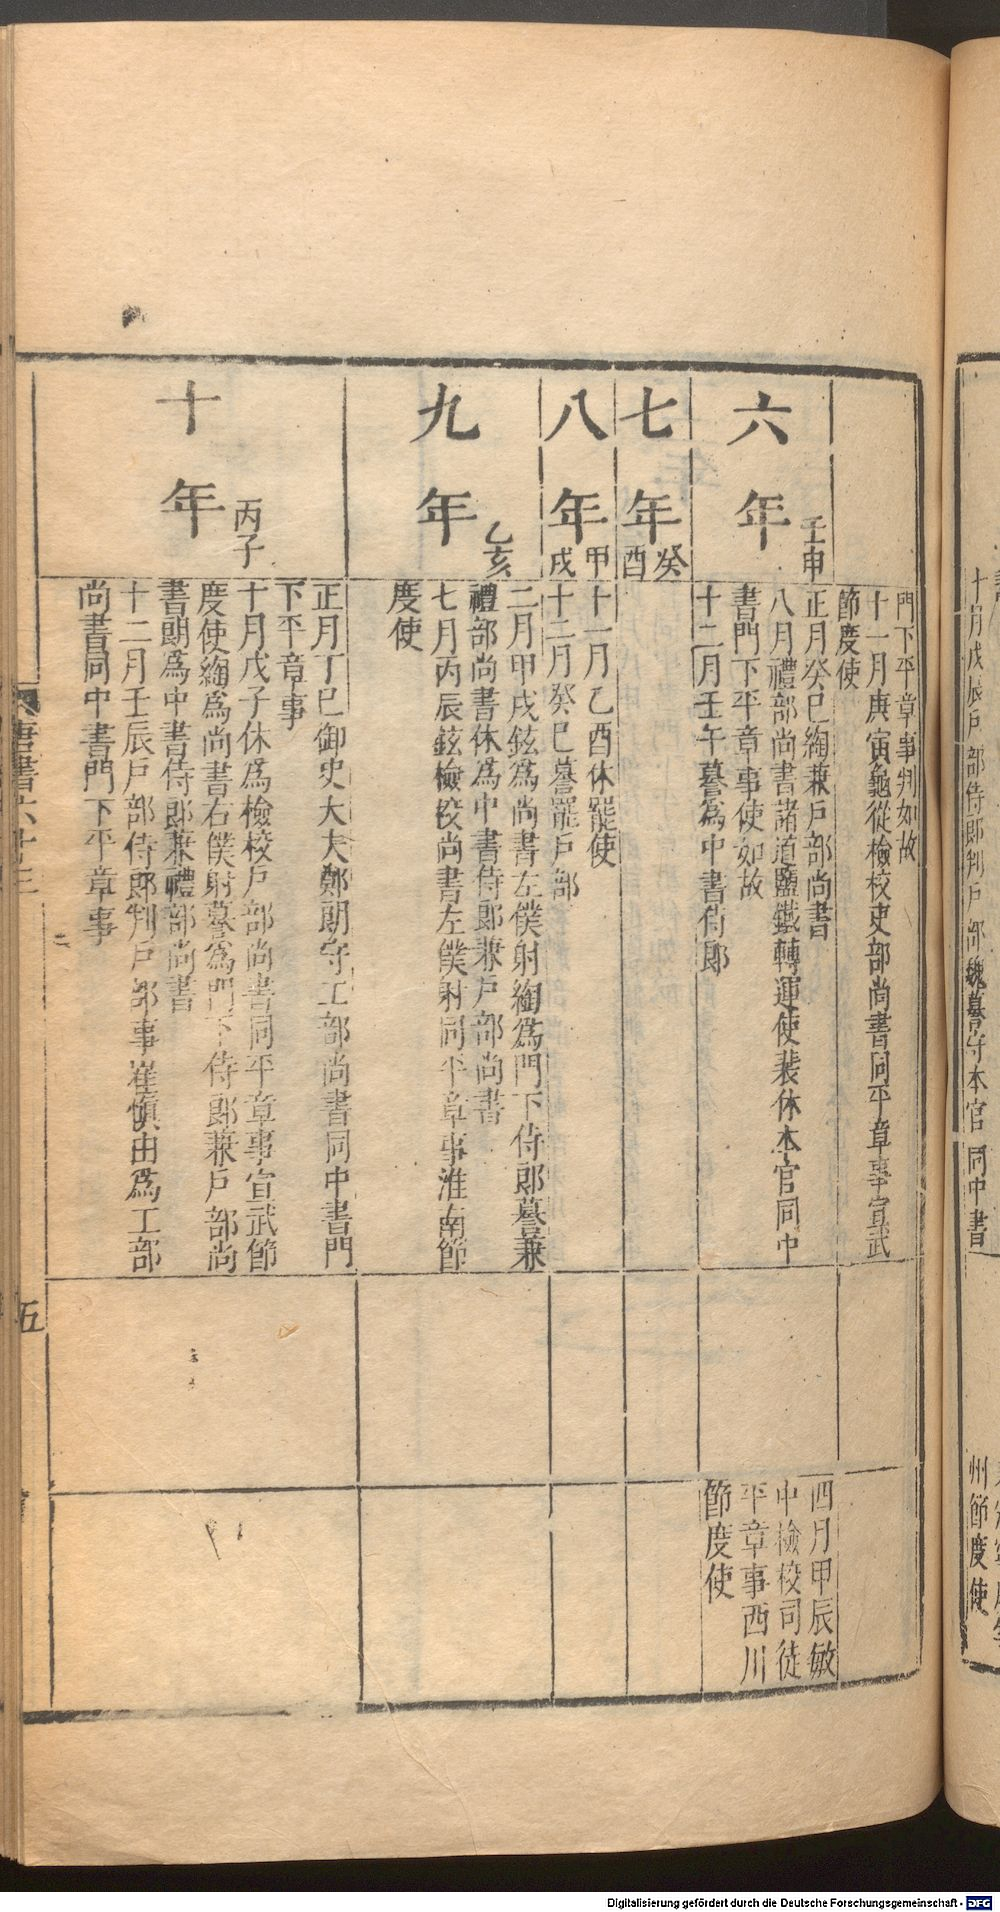 門下平章事判如故
十一月庚寅龜從檢校吏部尚書同平章事宣武
節度使
六年 壬申
正月癸巳綯兼戶部尚書
八月禮部尚書諸道鹽鐵轉運使裴休本官同中
書門下平章事使如故
十二月壬午謩爲中書侍郎
四月甲辰敏
中檢校司徒
平章事西川
節度使
七年 癸酉
八年 甲戌
十一月乙酉休罷使
十二月癸巳謩罷戶部
九年 乙亥
二月甲戌鉉爲尚書左僕射綯爲門下侍郎謩兼
禮部尚書休爲中書侍郎兼戶部尚書
七月丙辰鉉檢校尚書左僕射同平章事淮南節
度使
十年 丙子
正月丁巳御史大夫鄭朗守工部尚書同中書門
下平章事
十月戊子休爲檢校戶部尚書同平章事宣武節
度使綯爲尚書右僕射謩爲門下侍郎兼戶部尚
書朗爲中書侍郎兼禮部尚書
十二月壬辰戶部侍郎判戶部事崔愼由爲工部
尚書同中書門下平章事
唐書六十三
五
十月戊辰戶部侍郎判戶部魏謩守本官同中書
州節度使
Digitalisierung gefördert durch die Deutsche Forschungsgemeinschaft - DFG